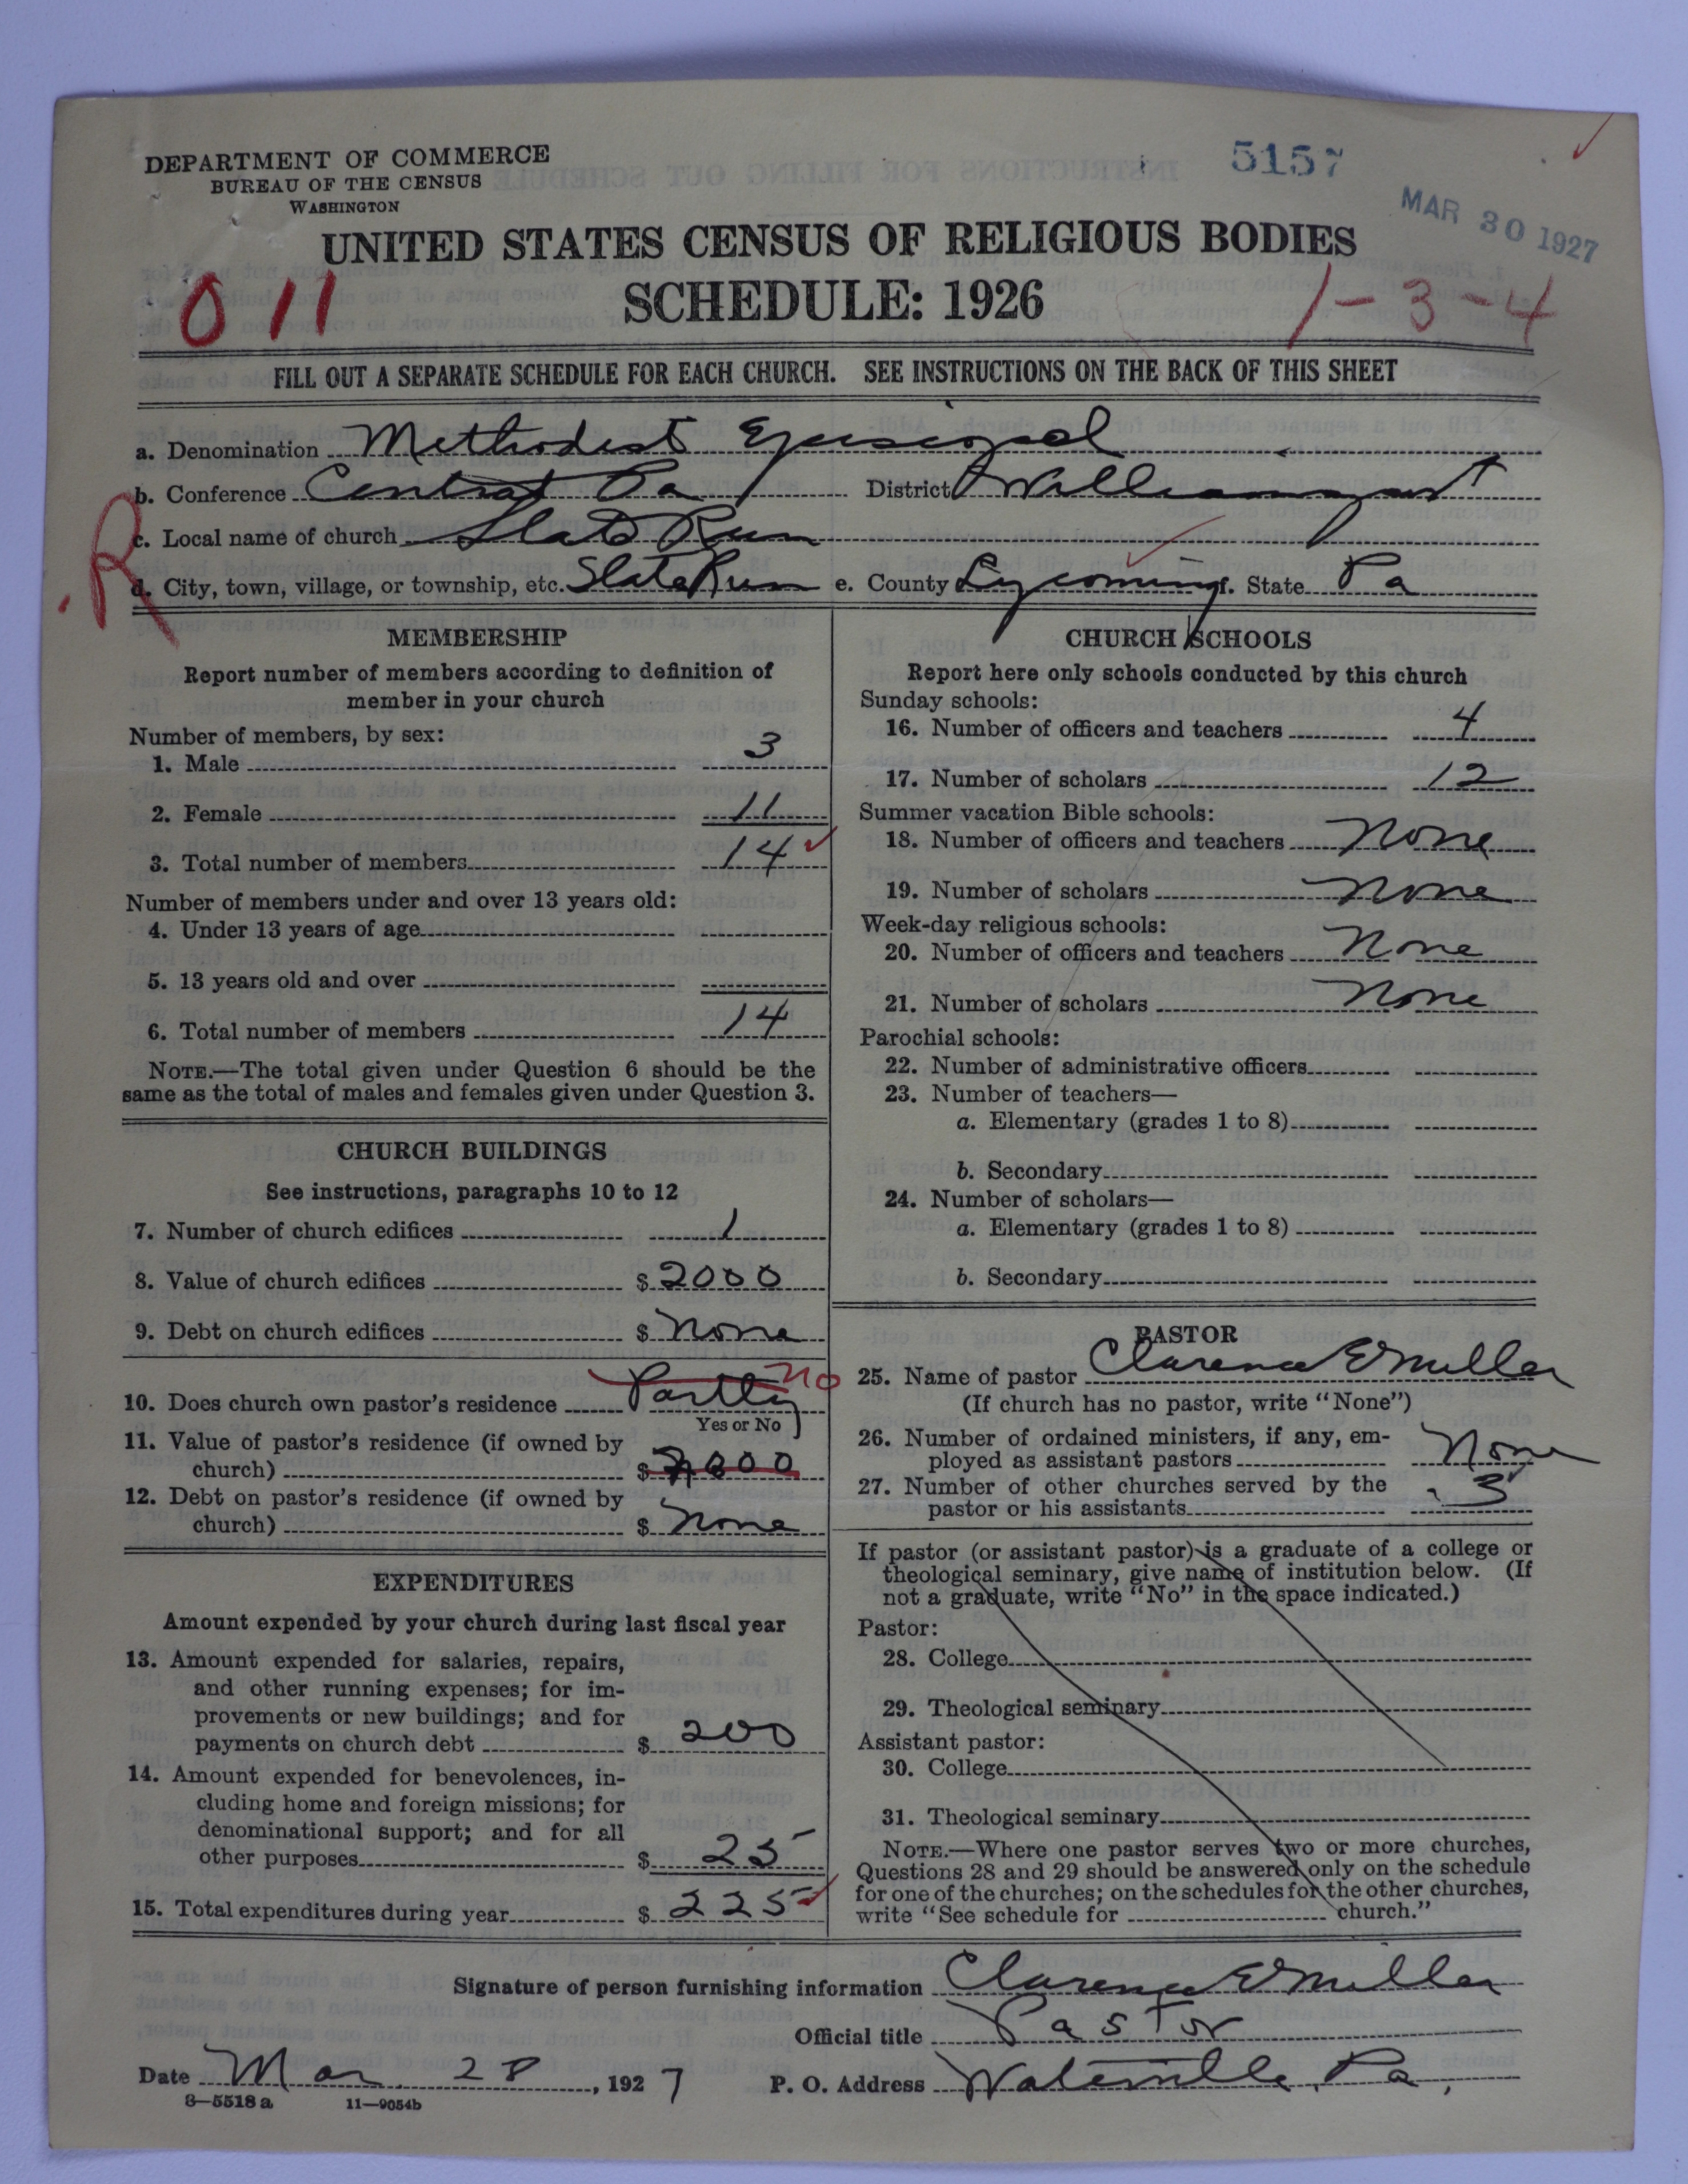 DEPARTMENT OF COMMERCE
BUREAU OF THE CENSUS
WASHINGTON
5157
MAR 30 1927
UNITED STATES CENSUS OF RELIGIOUS BODIES
SCHEDULE: 1926
011
1-3-4
FILL OUT A SEPARATE SCHEDULE FOR EACH CHURCH. SEE INSTRUCTIONS ON THE BACK OF THIS SHEET
a. Denomination Methodist Episcopal
b. Conference Central Pa District Williamsport
R
c. Local name of church Slate Run
d. City, town, village, or township, etc. Slate Run e. County Lycoming f. State Pa
MEMBERSHIP
Report number of members according to definition of
member in your church
Number of members, by sex:
1. Male 3
2. Female 11
3. Total number of members 14
Number of members under and over 13 years old:
4. Under 13 years of age
5. 13 years old and over
6. Total number of members 14
NOTE.—The total given under Question 6 should be the
same as the total of males and females given under Question 3.
CHURCH BUILDINGS
See instructions, paragraphs 10 to 12
7. Number of church edifices 1
8. Value of church edifices $ 2000
9. Debt on church edifices $ None
10. Does church own pastor's residence Partly no
Yes or No
11. Value of pastor's residence (if owned by
church) $ 2000
12. Debt on pastor's residence (if owned by
church) $ None
EXPENDITURES
Amount expended by your church during last fiscal year
13. Amount expended for salaries, repairs,
and other running expenses; for im-
provements or new buildings; and for
payments on church debt $ 200
14. Amount expended for benevolences, in-
cluding home and foreign missions; for
denominational support; and for all
other purposes $ 25
15. Total expenditures during year $ 225
CHURCH SCHOOLS
Report here only schools conducted by this church
Sunday schools:
16. Number of officers and teachers 4
17. Number of scholars 12
Summer vacation Bible schools:
18. Number of officers and teachers None
19. Number of scholars None
Week-day religious schools:
20. Number of officers and teachers None
21. Number of scholars None
Parochial schools:
22. Number of administrative officers
23. Number of teachers—
a. Elementary (grades 1 to 8)
b. Secondary
24. Number of scholars—
a. Elementary (grades 1 to 8)
b. Secondary
PASTOR
25. Name of pastor Clarence E Miller
(If church has no pastor, write "None")
26. Number of ordained ministers, if any, em-
ployed as assistant pastors None
27. Number of other churches served by the
pastor or his assistants 3
If pastor (or assistant pastor) is a graduate of a college or
theological seminary, give name of institution below. (If
not a graduate, write "No" in the space indicated.)
Pastor:
28. College
29. Theological seminary
Assistant pastor:
30. College
31. Theological seminary
NOTE.—Where one pastor serves two or more churches,
Questions 28 and 29 should be answered only on the schedule
for one of the churches; on the schedules for the other churches,
write "See schedule for church."
Signature of person furnishing information Clarence E Miller
Official title Pastor
Date Mar. 28, 1927 P. O. Address Waterville, Pa.
8—5518 a 11—9054b